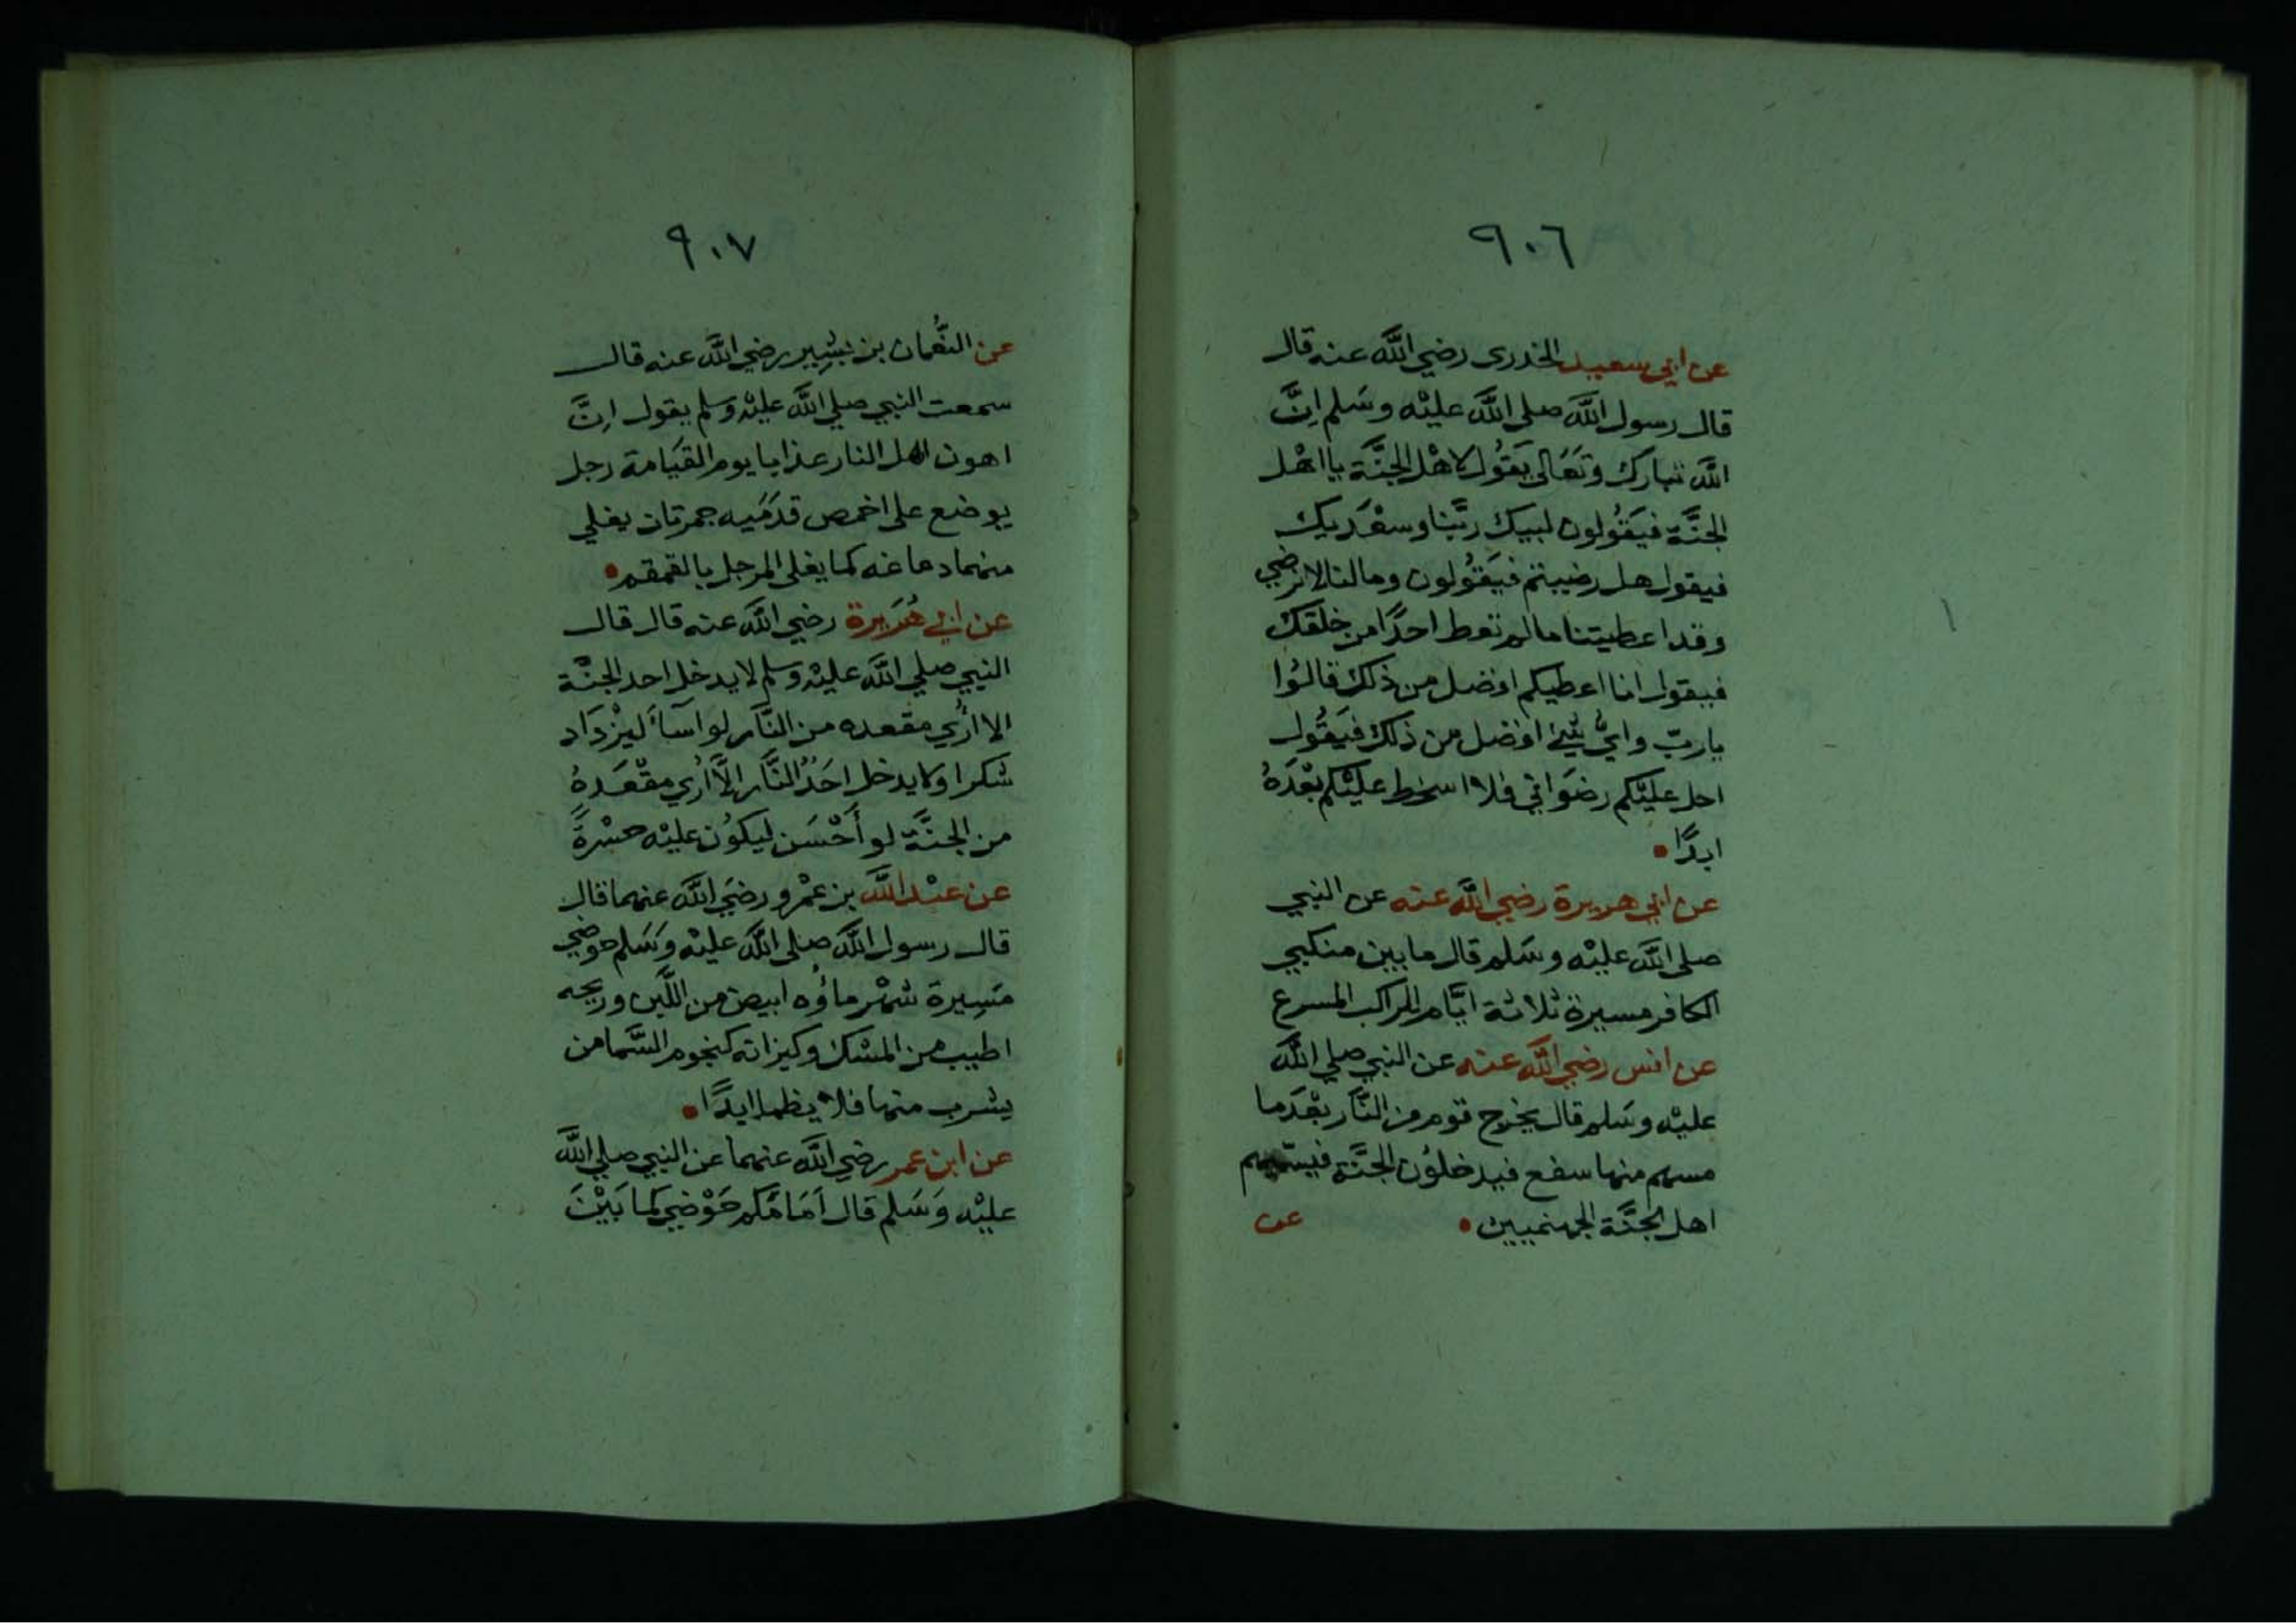 ٩٠٦
عن ابي سعيد الخدرى رضي الله عنه قال
قال رسول الله صلى الله عليْه وسَلم اِنَّ
الله تبارك وتَعَالى يَقُول لاهْل الجنَّة يا اهْل
الجنَّة فيَقُولون لبيك ربَّنا وسعْدَيك
فيقول هل رضيتم فيَقُولون ومالنا لا نرضي
وقد اعطيتنا مالم تعط احدًا من خلقك
فيقول انا اعطيكم افضل من ذلك قالوُا
يا ربّ وايُّ شيْئ افضل من ذلك فيَقُول
احل عليْكم رضوَاني فلا اسخط عليْكم بعْدَهُ
ابدًا
عن ابي هريرة رضي الله عنه عن النبي
صلى الله عليْه وسَلم قال ما بين منكبي
الكافر مسيرة ثلاثة ايَّام للراكب المسرع
عن انس رضي الله عنه عن النبي صلي الله
عليْه وسَلم قال يخرج قوم من النَّار بعْدَما
مسهم منها سفع فيدخلوُن الجنَّة فيسَمّيهم
اهل الجنَّة الجهنميين
عن
٩٠٧
عن النُّعْمان بن بَشِير رضي الله عنه قال
سمعت النبي صلي الله عليْه وسلم يقول اِنَّ
اهون اهل النار عذابا يوم القيَامة رجل
يوضع على اخمص قدمَيه جمرتان يغلي
منهما دماغه كما يغلى المرجل بالقمقم
عن ابي هُرَيرة رضي الله عنه قال قال
النبي صلي الله عليْه وسلم لا يدخل احد الجنَّة
الا اُرُي مقعده من النَّار لو اسآءَ ليْزدَاد
شكرا ولا يدخل احَدٌ النَّار الَّا اُرُي مقْعَدهُ
من الجنَّة لو أَحْسَن ليكوُن عليْه حسْرةً
عن عبْد الله بن عمْرو رضيَ الله عنهما قال
قال رسول الله صلى الله عليْه وسَلم حوضي
مَسِيرة شهْر ماؤُه ابيض من اللَّبن وريحه
اطيب من المسْك وكيزانه كنجوم السَّما من
يشرب منها فلا يظما ابدًا
عن ابن عمر رضي الله عنهما عن النبي صلي الله
عليْه وَسَلم قال اَمَامَكم حَوْضي كما بَيْنَ